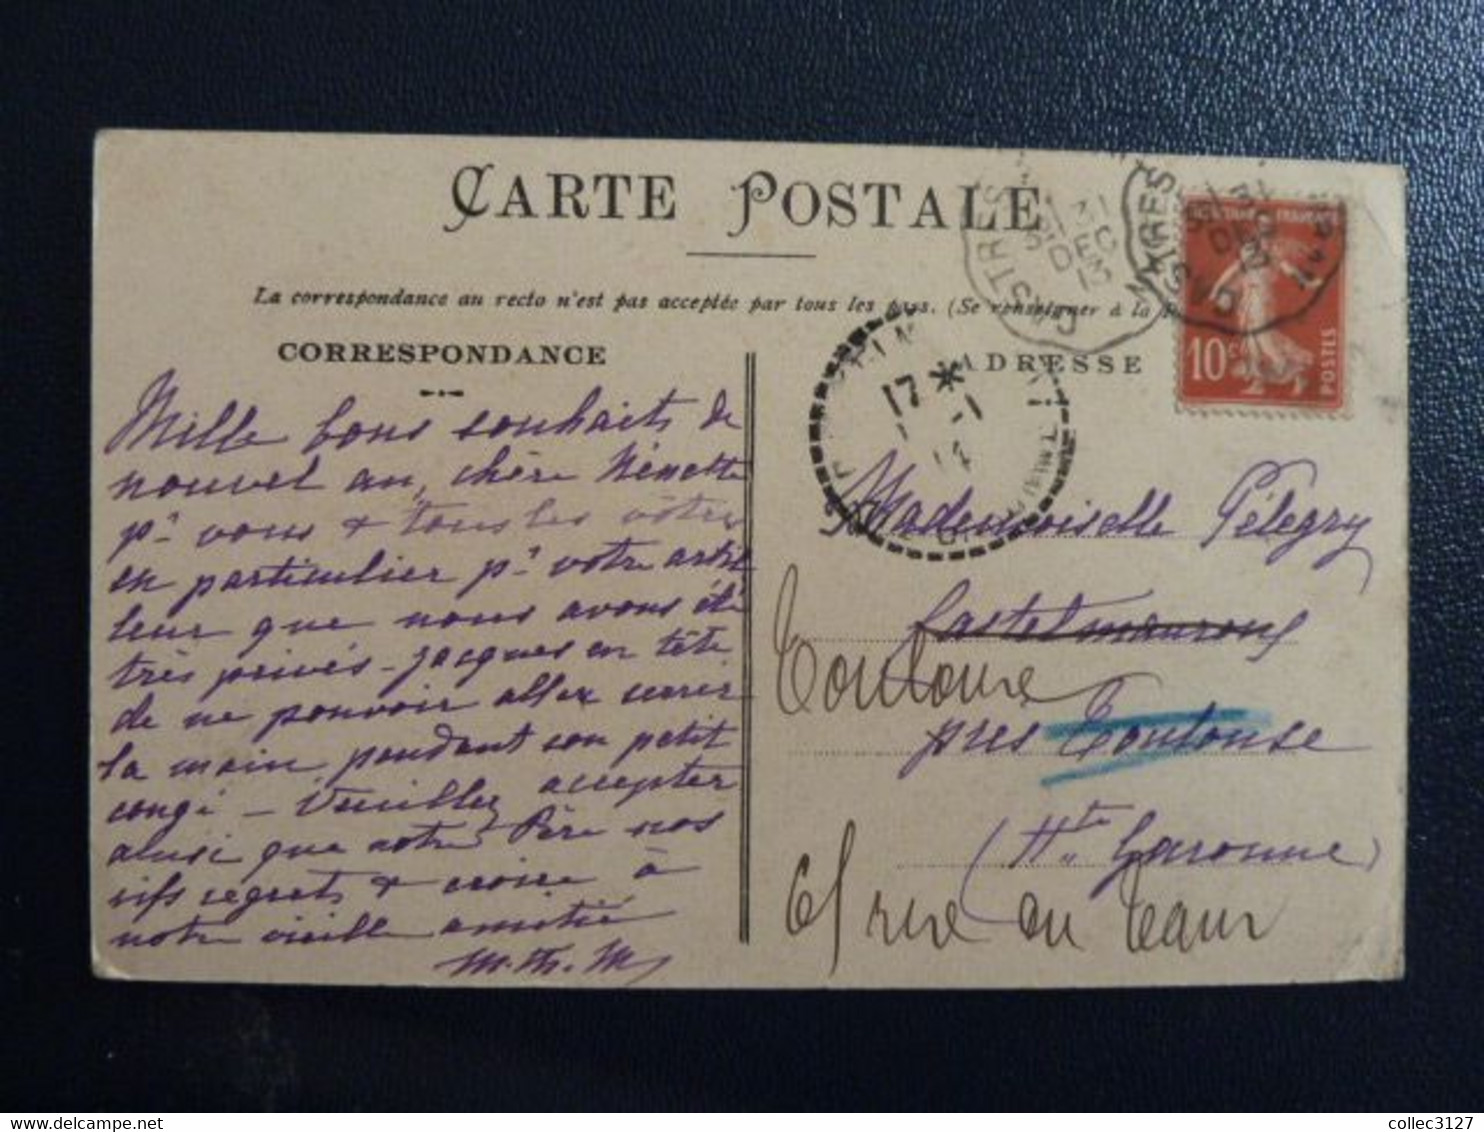 CARTE POSTALE
La correspondance au recto n'est pas acceptée par tous les pays. (Se renseigner à la
CORRESPONDANCE
Mille bons souhaits de
nouvel an, chère Nénette
pr vous & tous les vôtres
en particulier pr votre artil
leur que nous avons été
très privés - Jacques en tête
de ne pouvoir aller serrer
la main pendant son petit
congé - Veuillez accepter
ainsi que votre Père nos
vifs regrets & croire à
notre vieille amitié
M. Th. M
ADRESSE
Mademoiselle Pélegry
Castelmaurou
Toulouse
près Toulouse
(Hte Garonne)
61 rue du Taur
CASTRES
31
DEC
13
CASTRES
31
DEC
13
17 *
-1
14
10c
POSTES
collec3127